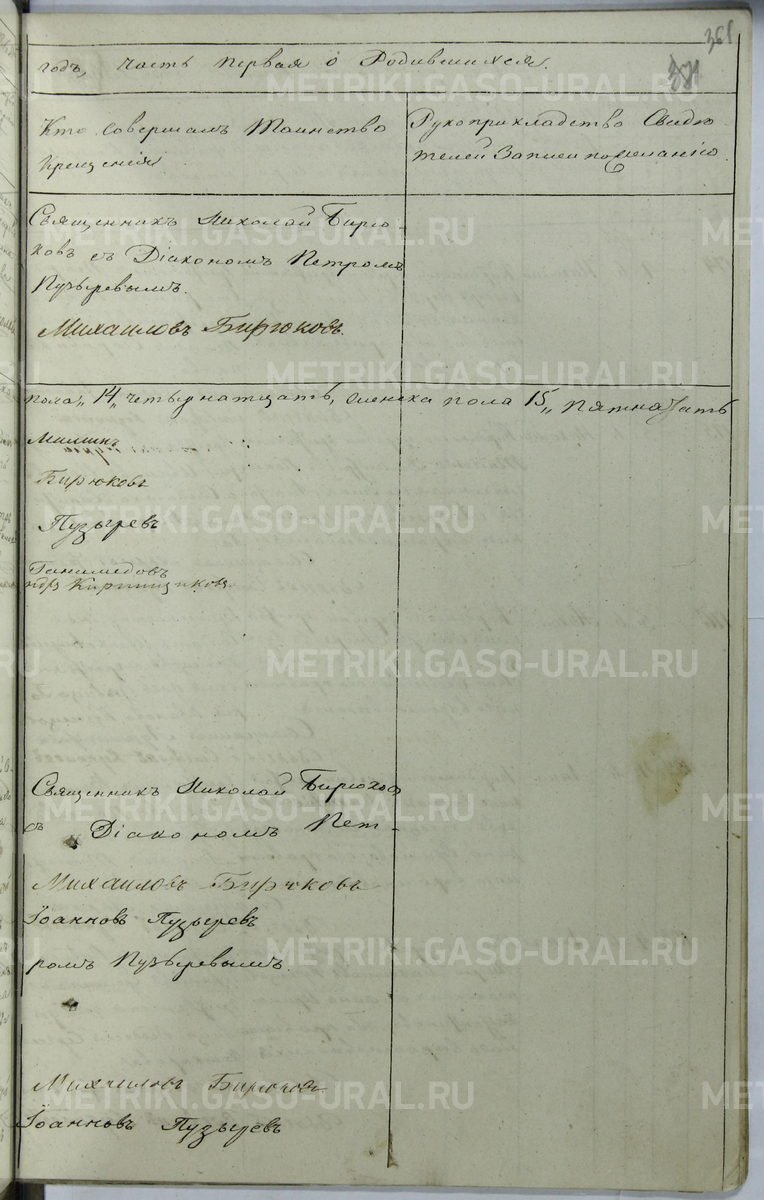 361
381
годъ, часть первая о Родившихся.
Кто совершалъ Таинство
крещенія
Рукоприкладство Свидѣ
телей Записи по желанію.
Священникъ Николай Бирю-
ковъ съ Діакономъ Петромъ
Пузыревымъ.
Михаиловъ Бирюковъ.
пола „14„ четырнатцать, женска пола 15„ пятнатцать
Бирюковъ
Пузыревъ
Ганимедовъ
Кирпищиковъ.
Священникъ Николай Бирюков
съ Діакономъ Пет-
Михаиловъ Бирюковъ
Іоанновъ Пузыревъ
ромъ Пузыревымъ.
Михаиловъ Бирюковъ
Іоанновъ Пузыревъ
METRIKI.GASO-URAL.RU